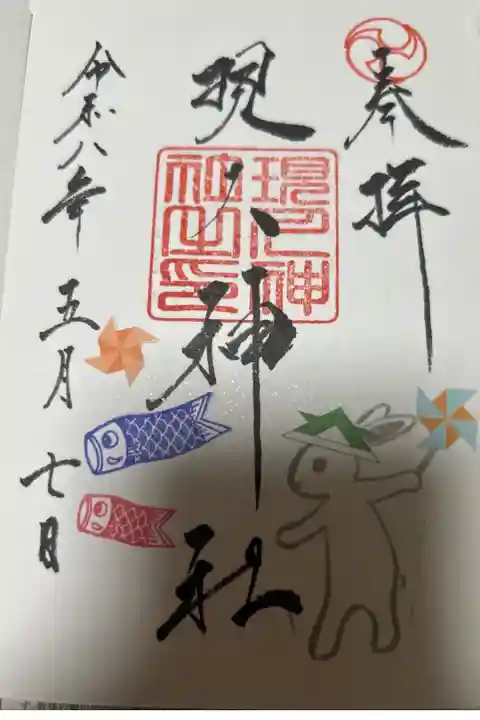 奉拝
現人神社
現人神
社之印
令和八年五月七日